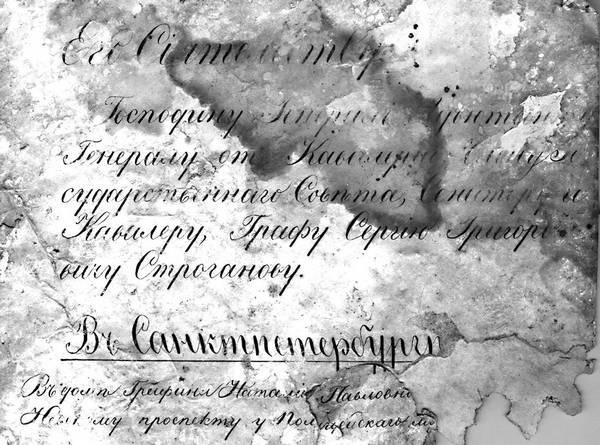 Его Сіятельству
Господину Генералъ Адъютанту
Генералу от Кавалеріи Члену Го
сударственнаго Совѣта, Сенатору и
Кавалеру, Графу Сергію Григорье
вичу Строганову.
Въ Санктпетербургѣ
Въ домѣ Графини Наталіи Павловны
проспекту у Полицейскаго